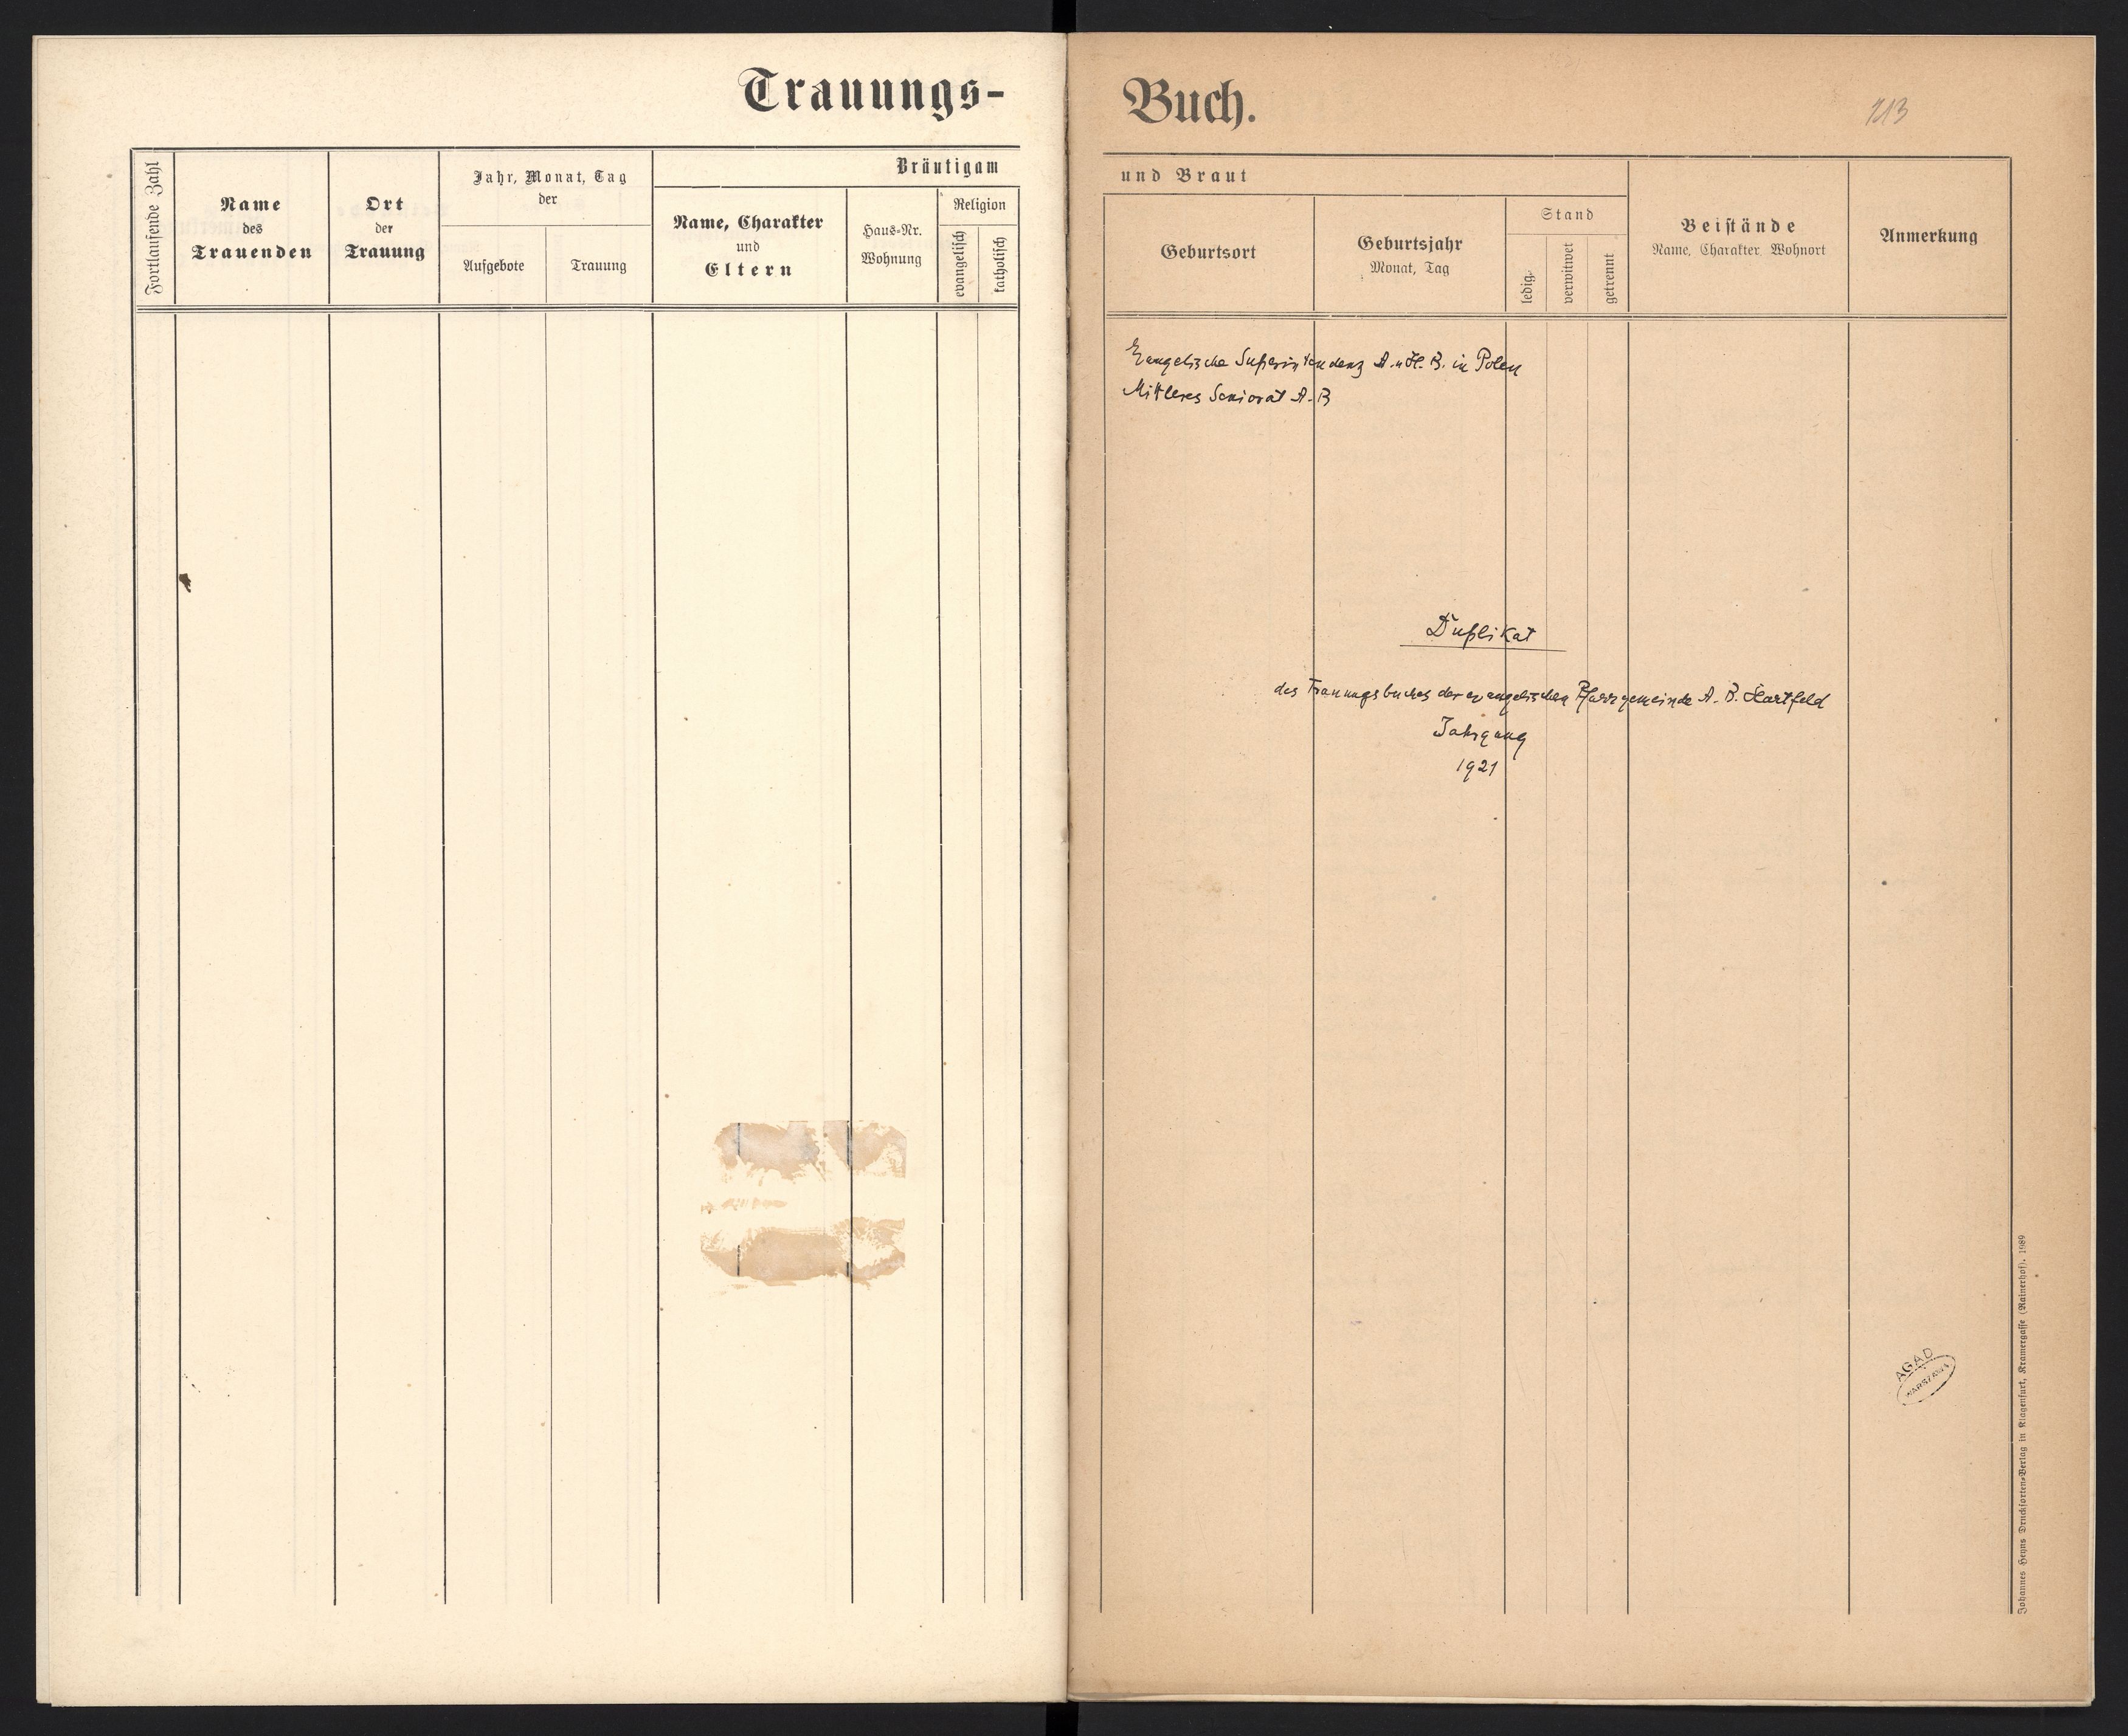 Trauungs-
Fortlaufende Zahl
Name
des
Trauenden
Ort
der
Trauung
Jahr, Monat, Tag
der
Aufgebote
Trauung
Bräutigam
Name, Charakter
und
Eltern
Haus-Nr.
Wohnung
Religion
evangelisch
katholisch
Buch.
113
und Braut
Geburtsort
Geburtsjahr
Monat, Tag
Stand
ledig
verwitwet
getrennt
Beistände
Name, Charakter, Wohnort
Anmerkung
Evangelische Superintendenz A. u. H. B. in Polen
Mittleres Seniorat A. B
Duplikat
des Trauungsbuches der evangelischen Pfarrgemeinde A. B. Hartfeld
Jahrgang
1921
AGAD
WARSZAWA
Johannes Heyns Drucksorten-Verlag in Klagenfurt, Kramergasse (Rainerhof). 1989